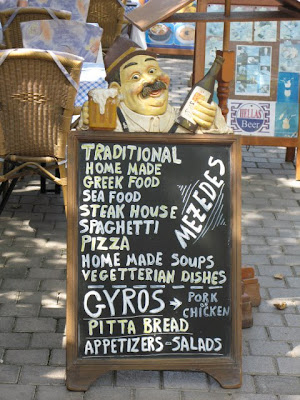 TRADITIONAL
HOME MADE
GREEK FOOD
SEA FOOD
STEAK HOUSE
SPAGHETTI
PIZZA
MEZEDES
HOME MADE SOUPS
VEGETTERIAN DISHES
GYROS → PORK OR CHICKEN
PITTA BREAD
APPETIZERS = SALADS
HELLAS
Beer